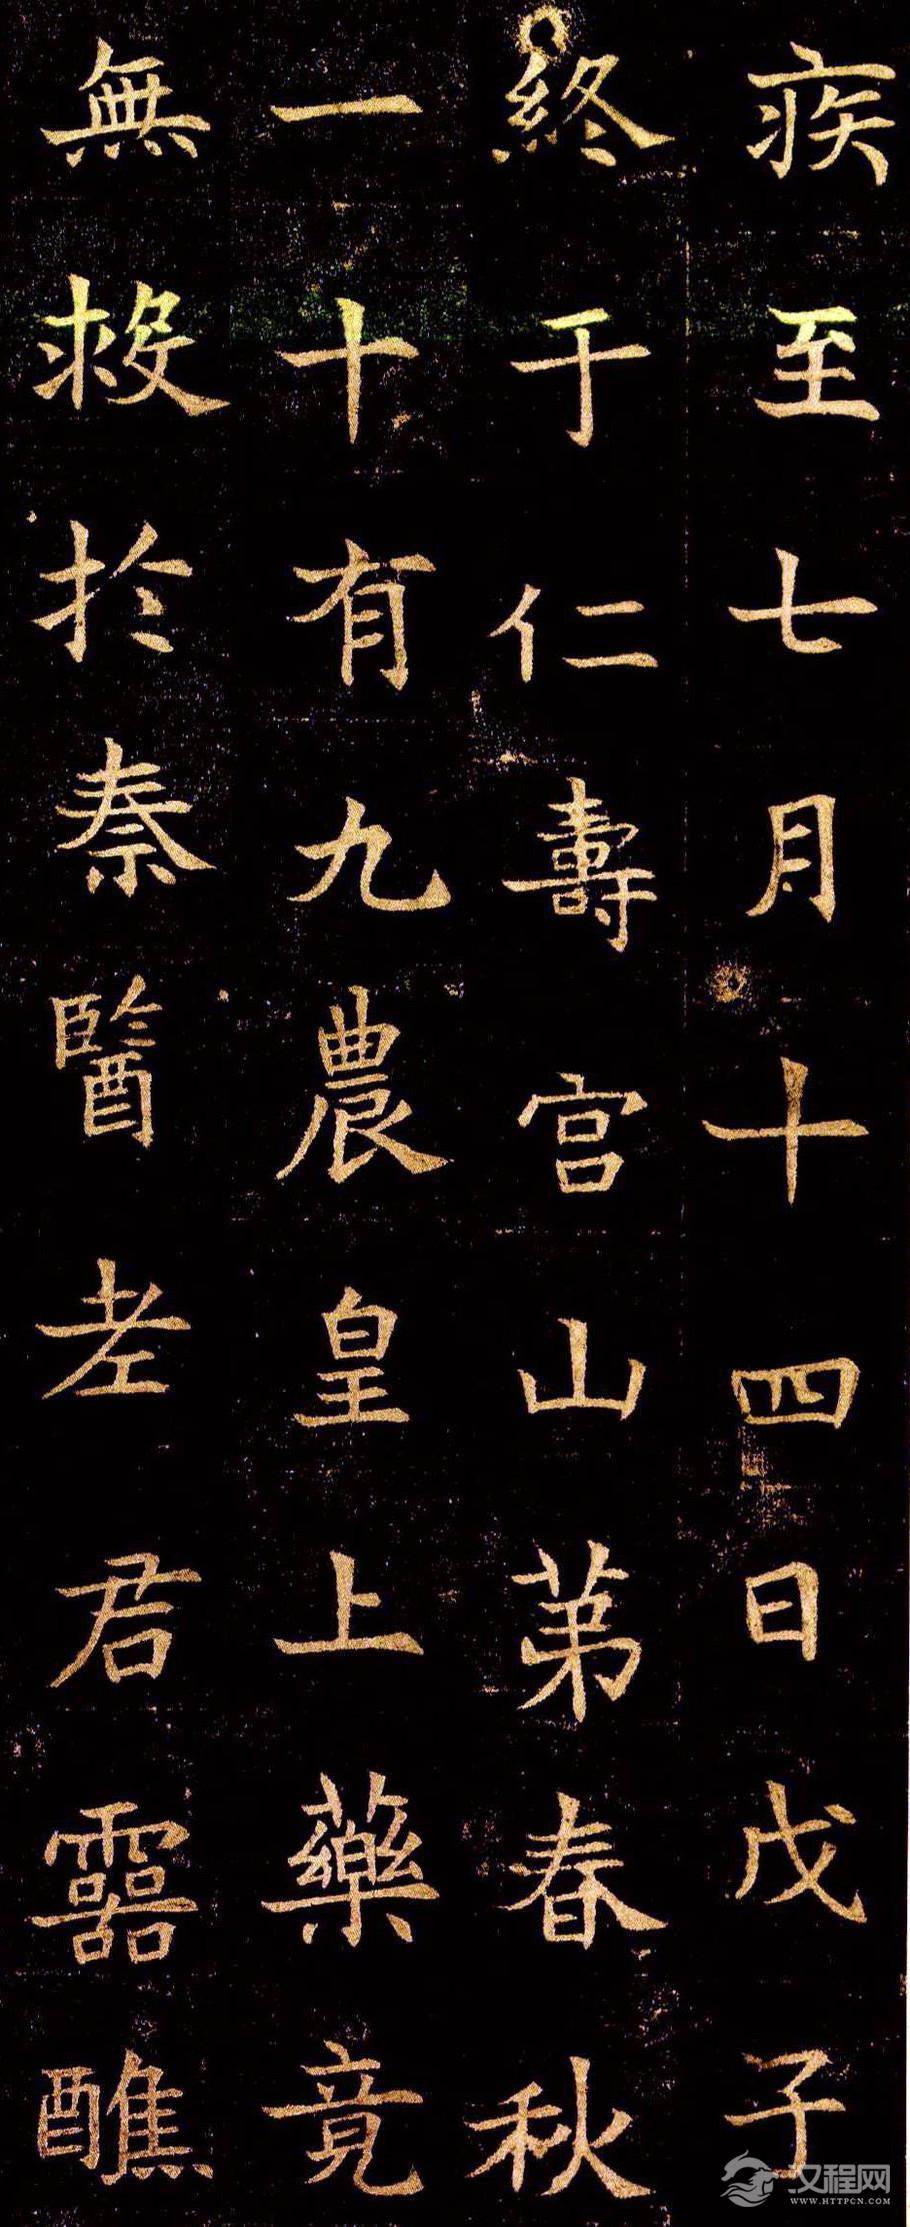 疾至七月十四日戊子
終于仁壽宮山第春秋
一十有九農皇上藥竟
無救於秦醫老君靈醮
汉程网
WWW.HTTPCN.COM